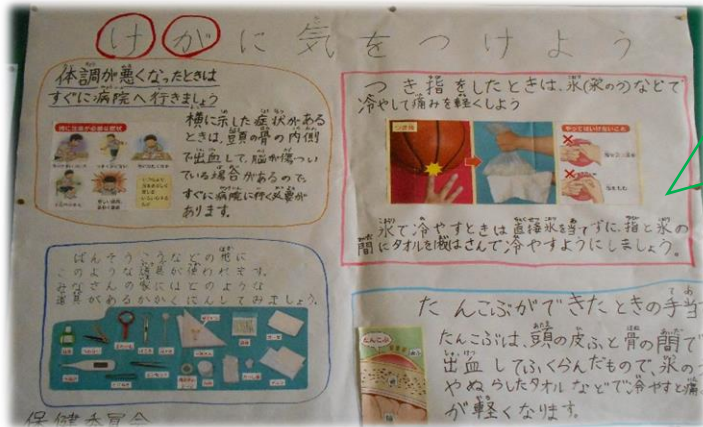 けがに気をつけよう
体調が悪くなったときは
すぐに病院へ行きましょう
横に示した症状がある
ときは、頭の骨の内側
で出血して、脳が傷つい
ている場合があるので、
すぐに病院に行く必要が
あります。
ばんそうこうなどの他に
このような道具が使われます。
みなさんの家にはどのような
道具があるかかくにんしてみましょう。
保健委員会
つき指をしたときは、氷(氷のう)などで
冷やして痛みを軽くしよう
つき指
やってはいけないこと
氷で冷やすときは直接氷を当てずに、指と氷の
間にタオルを1枚はさんで冷やすようにしましょう。
たんこぶができたときの手当
たんこぶは、頭の皮ふと骨の間で
出血してふくらんだもので、氷のう
やぬらしたタオルなどで冷やすと痛
が軽くなります。
たんこぶ